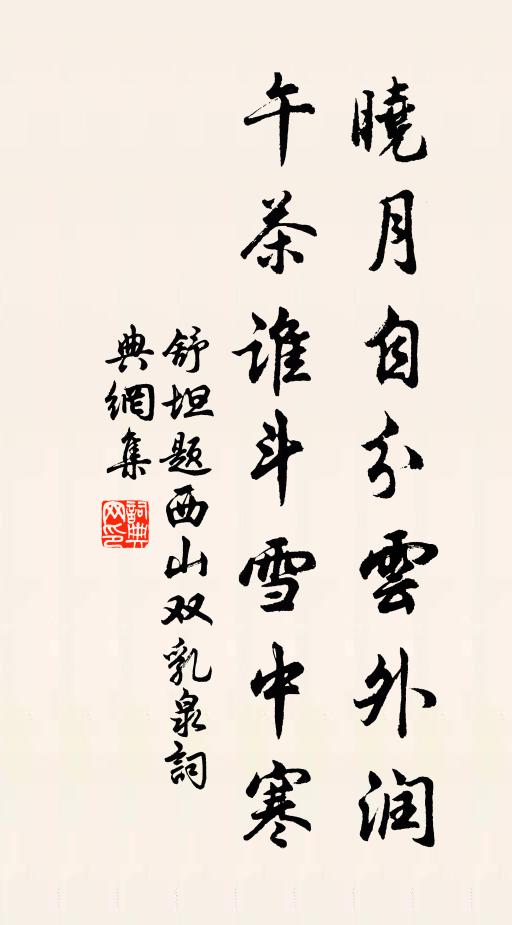 曉月自分雲外润
午茶誰斗雪中寒
舒坦题西山双乳泉詞
典網集
詞典网印